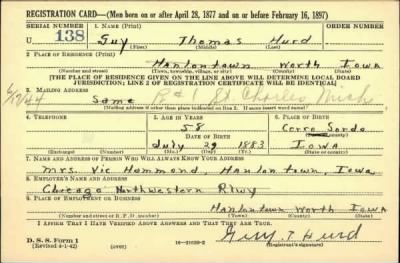 REGISTRATION CARD—(Men born on or after April 28, 1877 and on or before February 16, 1897)
SERIAL NUMBER 1. NAME (Print) ORDER NUMBER
U 138 Guy Thomas Hurd
(First) (Middle) (Last)
2. PLACE OF RESIDENCE (Print)
Hanlontown Worth Iowa
(Number and street) (Town, township, village, or city) (County) (State)
[THE PLACE OF RESIDENCE GIVEN ON THE LINE ABOVE WILL DETERMINE LOCAL BOARD
JURISDICTION; LINE 2 OF REGISTRATION CERTIFICATE WILL BE IDENTICAL]
3. MAILING ADDRESS
Same St Charles Mich
[Mailing address if other than place indicated on line 2. If same insert word same]
4. TELEPHONE 5. AGE IN YEARS 6. PLACE OF BIRTH
58 Cerro Gordo
DATE OF BIRTH (Town or county)
July 29 1883 Iowa
(Exchange) (Number) (Mo.) (Day) (Yr.) (State or country)
7. NAME AND ADDRESS OF PERSON WHO WILL ALWAYS KNOW YOUR ADDRESS
Mrs. Vic Hammond, Hanlontown, Iowa
8. EMPLOYER'S NAME AND ADDRESS
Chicago Northwestern Rlwy
9. PLACE OF EMPLOYMENT OR BUSINESS
Hanlontown Worth Iowa
(Number and street or R. F. D. number) (Town) (County) (State)
I AFFIRM THAT I HAVE VERIFIED ABOVE ANSWERS AND THAT THEY ARE TRUE.
D. S. S. Form 1
(Revised 4-1-42) (over) Guy T Hurd
(Registrant's signature)